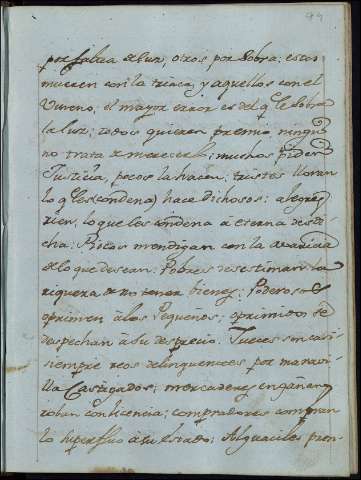 94
por falta de luz, otros por sobra: estos
mueren con la triaca, y aquellos con el
Veneno; el mayor error es del q.e le sobra
la luz; todos quieren premio, ningu.o
no trata de merecerlo; muchos piden
Justicia, pocos la hacen: tristes lloran
lo q.e les condena, hace dichosos: alegres
rien, lo que les condena à eterna desdi-
cha: Ricos mendigan con la avaricia
de lo que desean: Pobres desestiman la
riqueza de no tener bienes: Poderosos
oprimen à los Pequeños; oprimidos se
despechan à su desprecio. Jueces son casi
siempre reos delinquentes por maravi-
lla Castigados; mercaderes engañan, y
roban con licencia; compradores compran
lo superfluo à su estado; Alguaciles pren-